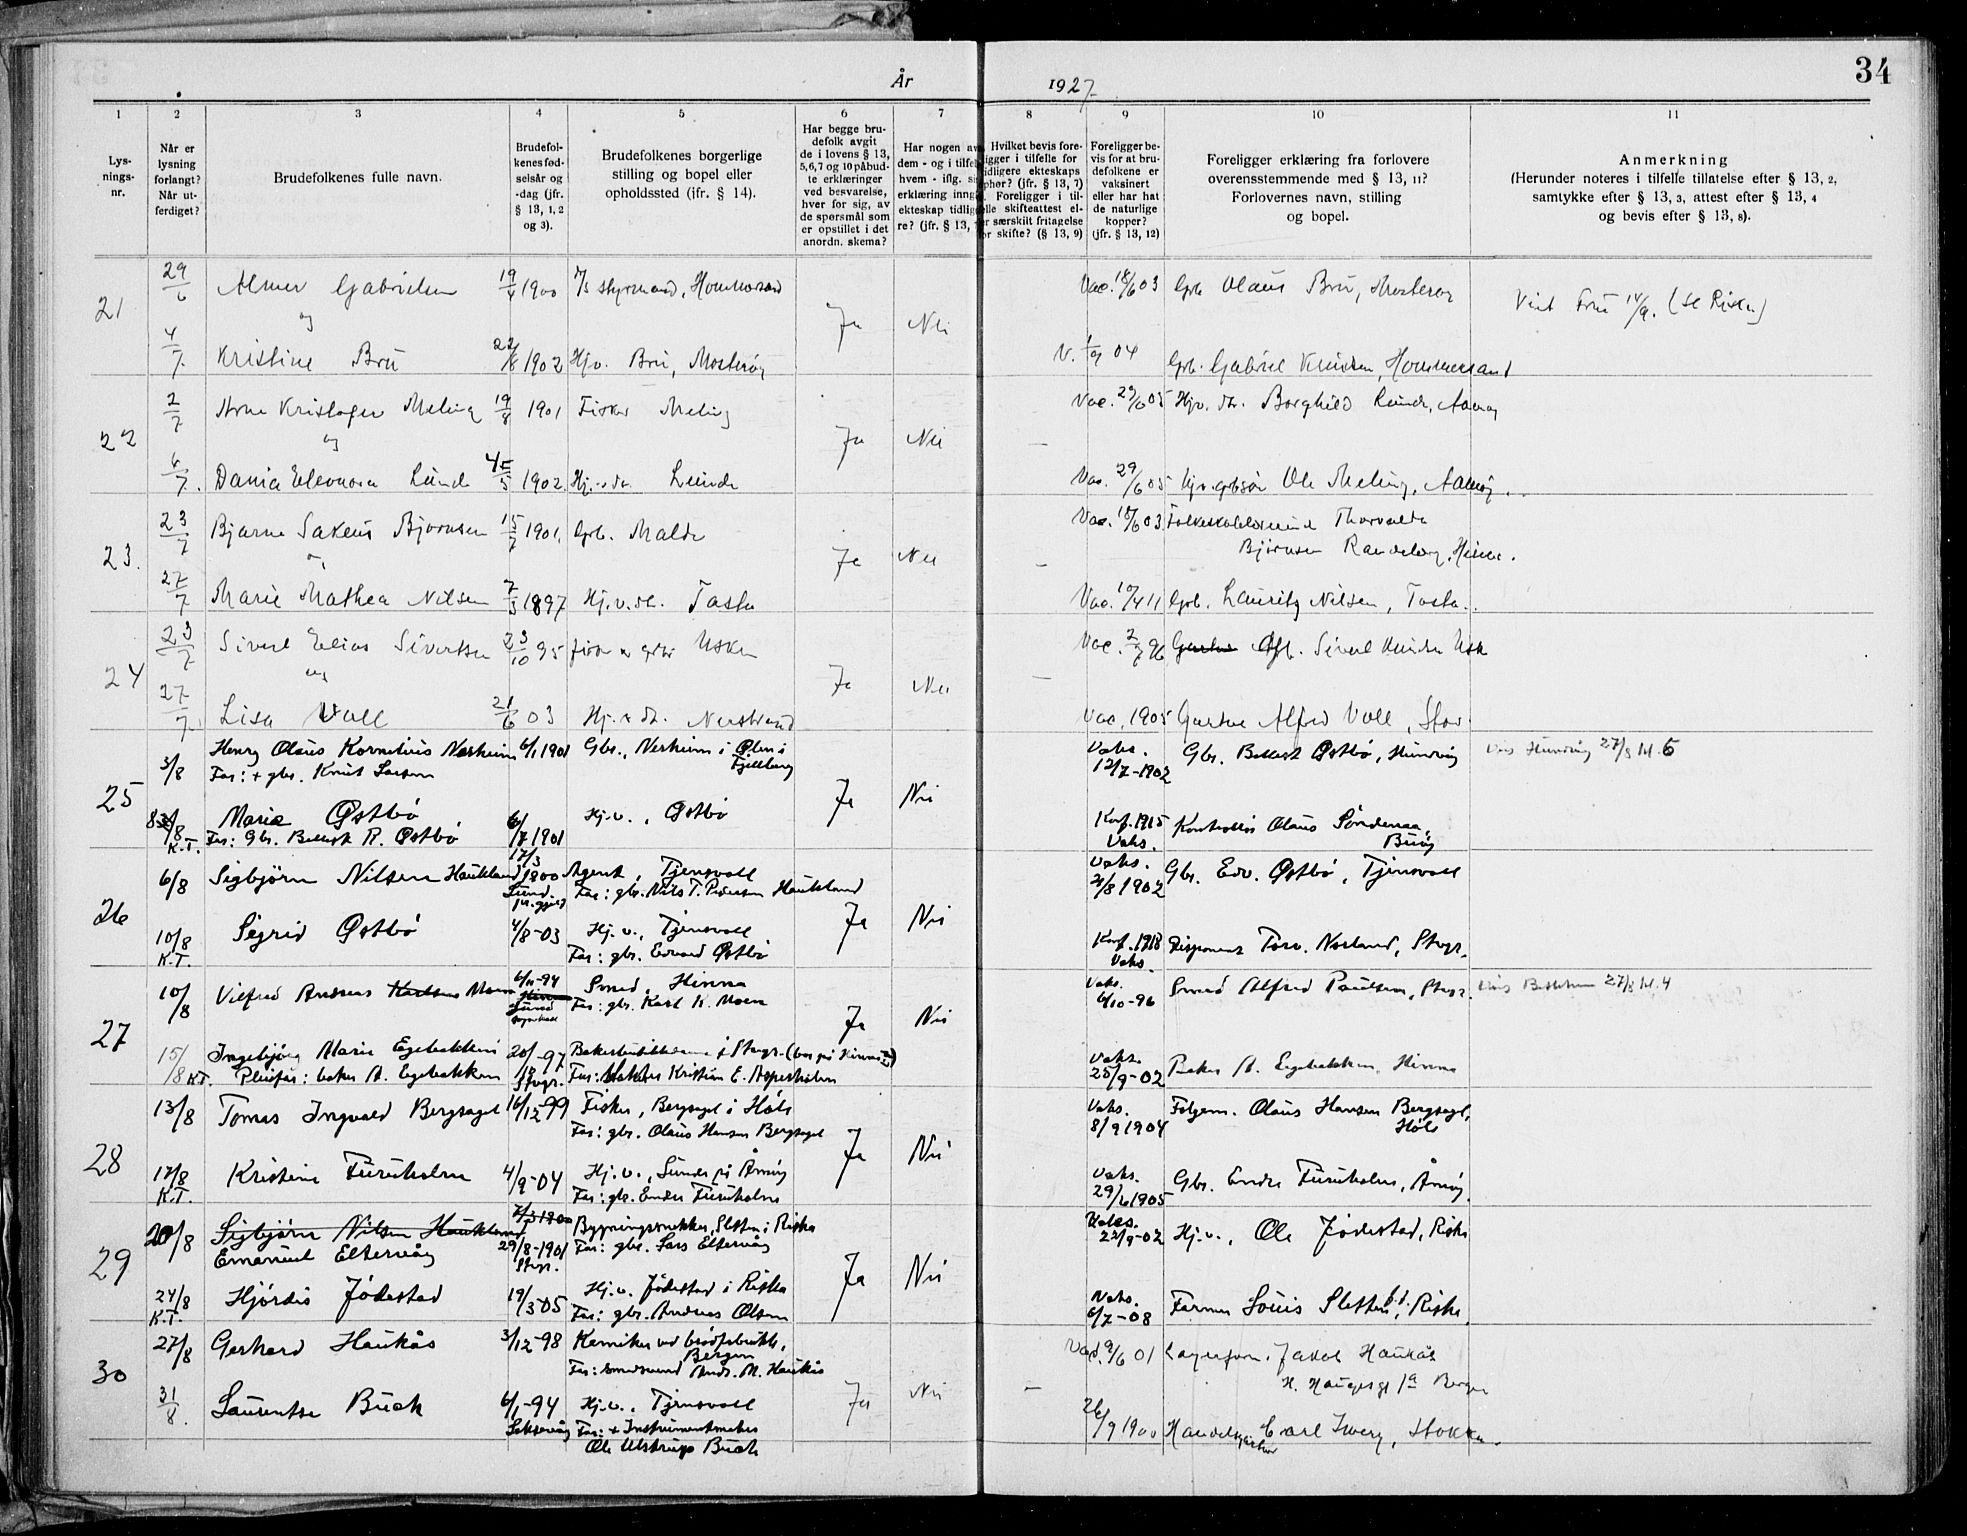 34
År 1927
1 2 3 4 5 6 7 8 9 10 11
Lysningsnr.
Når er lysning forlangt? Når utferdiget?
Brudefolkenes fulle navn.
Brudefolkenes fødselsår og -dag (jfr. § 13, 1, 2 og 3).
Brudefolkenes borgerlige stilling og bopel eller opholdssted (jfr. § 14).
Har begge brudefolk avgit de i lovens § 13, 5,6,7 og 10 påbudte erklæringer ved besvarelse, hver for sig, av de spørsmål som er opstillet i det anordn. skema?
Har nogen av dem - og i tilfelle hvem - iflg. erklæring inngått ekteskap tidligere? (jfr. § 13,
Hvilket bevis foreligger i tilfelle for tidligere ekteskaps ophør? (jfr. § 13, 7) Foreligger i tilfelle skifteattest eller særskilt fritagelse for skifte? (§ 13, 9)
Foreligger bevis for at brudefolkene er vaksinert eller har hat de naturlige kopper? (jfr. § 13, 12)
Foreligger erklæring fra forlovere overensstemmende med § 13, 11? Forlovernes navn, stilling og bopel.
Anmerkning (Herunder noteres i tilfelle tillatelse efter § 13, 2, samtykke efter § 13, 3, attest efter § 13, 4 og bevis efter § 13, 8).
21 29/6 Almer Gabrielsen 19/4 1900 styrmand, Hommersand Vac. 18/6 03 Gbr. Olaus Bru, Mosterøy
og Ja Nei
4/7 Kristine Bru 22/8 1902 Hj.v. Bru, Mosterøy V. 1/9 04 Gbr. Gabriel Knudsen, Hommersand
22 2/7 Arne Kristofer Meling 19/8 1901 Fisker Meling Vac. 29/6 05 Borghild Lunde, Aamøy
og Ja Nei —
6/7. Dania Eleonora Lunde 5/5 1902. Lunde Vac. 29/6 05 Ole Meling, Aamøy
23. 23/7 Bjarne Sakeus Bjørnsen 15/7 1901, Gbr. Malde Vac. 18/6 03 Thorvalda
Bjørnsen Randeberg, Hinna.
Ja Nei —
27/7 Marie Mathea Nilsen 7/3 1897 Hj.v. dtr. Tasta Vac. 10/4 11 Gbr. Lauritz Nilsen, Tasta.
24 23/7 Sivert Elias Sivertsen 23/10 95 Usken Vac. 2/7 96 Gbr. Sivert Knudsen Usk
og Ja Nei —
27/7. Lisa Voll 21/6 03 Hj.v. dtr. Nerstrand Vac. 1905 Gartner Alfred Voll, Stav.
25 3/8 Henry Olaus Kornelius Nerheim 6/1 1901 Gbr., Nerheim i Ølen i
Fjellberg Vaks. 12/7-1902 Gbr. Østbø, Hundvåg 27/8 kl. 6
Far: + gbr. Knut Larsen
Ja Nei
8/8 K.T. Marie Østbø 6/7 1901 Hj.v., Østbø Konf. 1915 Vaks. Kontrollør Olaus Søndenaa, Buøy
Far: Gbr. R. Østbø
26 6/8 Sigbjørn Nilsen Haukland 17/3 1800 Lund Agent, Tjensvoll Vaks. 21/8 1902 Gbr. Edv. Østbø, Tjensvoll
Far: gbr. Nils T. Pedersen Haukland
Ja Nei
10/8 K.T. Sigrid Østbø 4/8-03 Hj.v., Tjensvoll Konf. 1918 Vaks. Disponent Torv. Norland, Stvgr.
Far: gbr. Edvard Østbø
27 10/8 Vilfred Andreas Karlsen Moen 6/11-94 Smed, Hinna Vaks. 6/10-96 Smed Alfred Paulsen, Stvgr. 27/8 kl. 4
Far: gbr. Karl K. Moen
Ja Nei
15/8 K.T. Ingebjørg Marie Egebakken 20/12-97 Stvgr. i Stvgr. (bor på Hinna) Vaks. 25/9-02 Baker A. Egebakken, Hinna
Pleiefar: baker A. Egebakken Far: Kristian E. Aspeholm
28 13/8 Tomas Ingvald Bergsagel 16/12-99 Fisker, Bergsagel i Høle Vaks. 8/9 1904 Olaus Hansen Bergsagel, Høle
Far: gbr. Olaus Hansen Bergsagel
Ja Nei
17/8 K.T. Kristine Furuholm 4/9-04 Hj.v., Lunde på Åmøy Vaks. 29/6 1905 Gbr. Endre Furuholm, Åmøy.
Far: gbr. Endre Furuholm
29 20/8 Sigbjørn Nilsen Haukland 7/3 1800 Bygningssnekker, Sletten i Riska Vaks. 22/9-02 Hj.v., Ole Jødestad, Riska
Emanuel Eltervåg 29/8-1901 Stvgr. Far: gbr. Lars Eltervåg
Ja Nei
24/8 K.T. Hjördis Jödestad 19/3-05 Hj.v. Jødestad i Riska Vaks. 6/7-08 Farmer Louis Sletten, Riska.
Far: gbr. Andreas Olsen
30 27/8 Gerhard Haukås 3/12-98 Kemiker ved brødfabrikk, Bergen Vac. 9/6 01 Lagerform. Jakob Haukås
H. Haugesgt 1a Bergen
Far: Andr. M. Haukås
Ja Nei —
31/8. Laurentse Buch 6/1-94 Hj.v., Tjensvoll 26/9 1900 Handelsgartner Carl Iversen, Stokka.
Far: + Instrumentmaker
Ole Ulstrup Buch